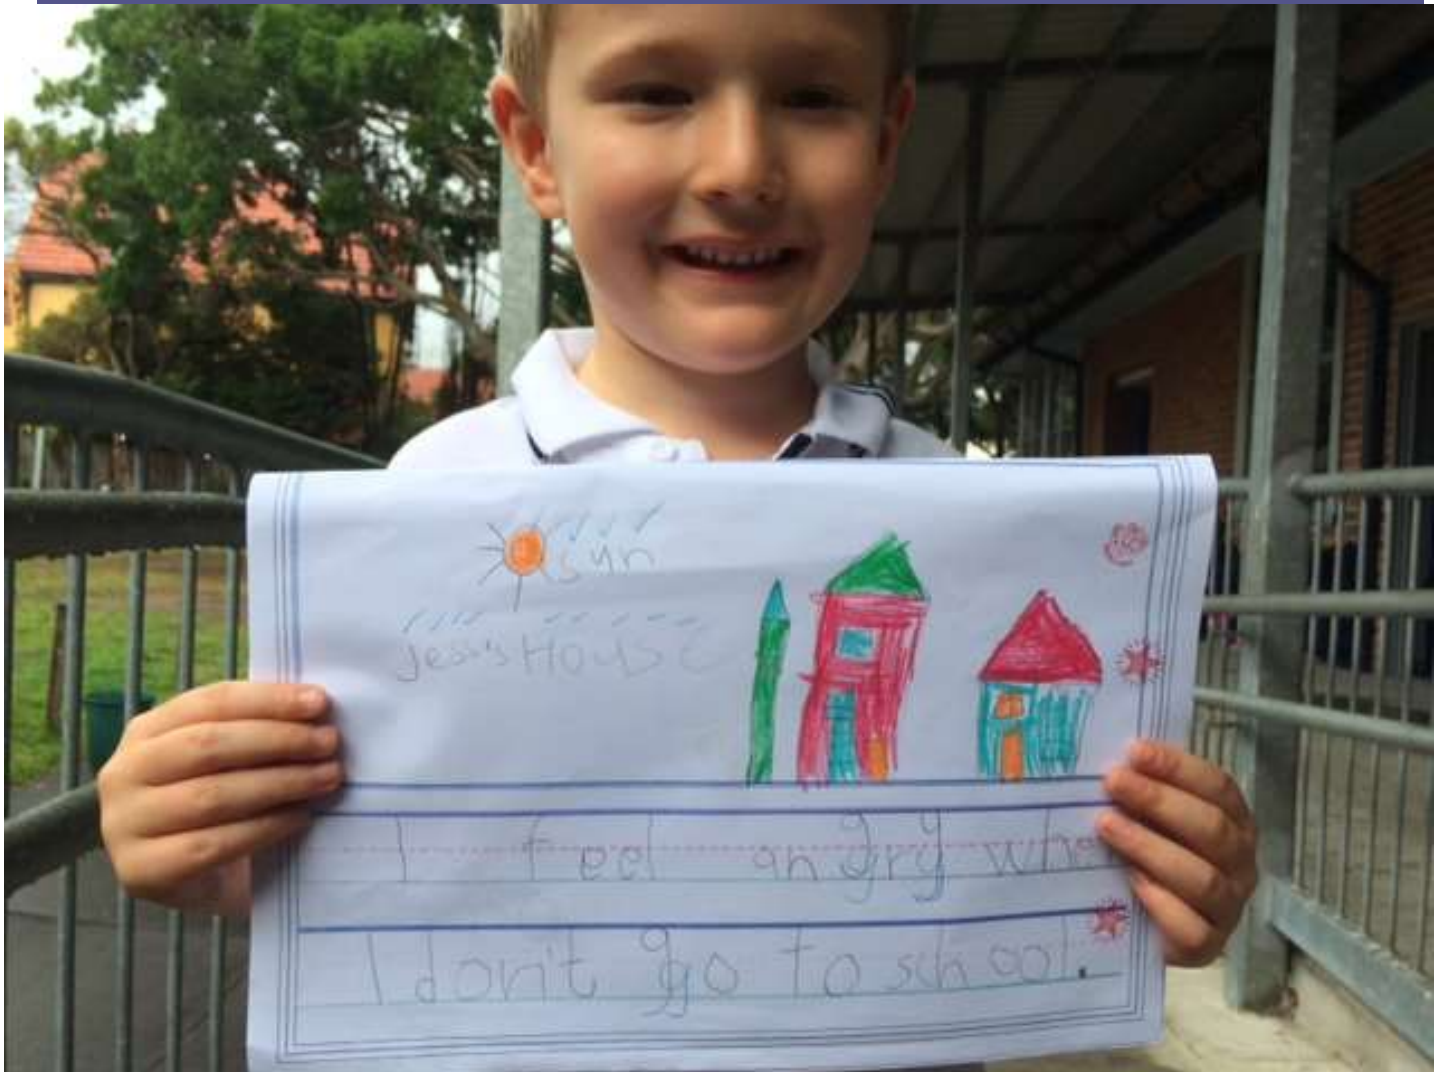 sun
Jess's House
I feel angry whe
I don't go to school.